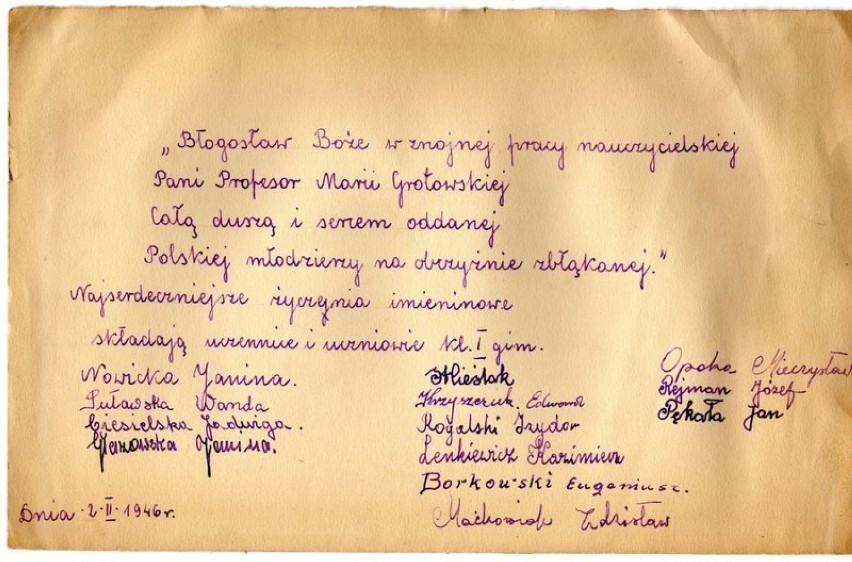 „Błogosław Boże w znojnej pracy nauczycielskiej
Pani Profesor Marii Grotowskiej
Całą duszą i sercem oddanej
Polskiej młodzieży na obczyźnie zbłąkanej."
Najserdeczniejsze życzenia imieninowe
składają uczennice i uczniowie kl. I gim.
Nowicka Janina.
Puławska Wanda
Ciesielska Jadwiga.
Janina.
Mieślak
Krzyszczuk Edward
Rogalski Izydor
Lenkiewicz Kazimierz
Borkowski Eugeniusz.
Maćkowiak Zdzisław
Opoka Mieczysław
Rejman Józef
Pękała Jan
Dnia 2·II·1946 r.